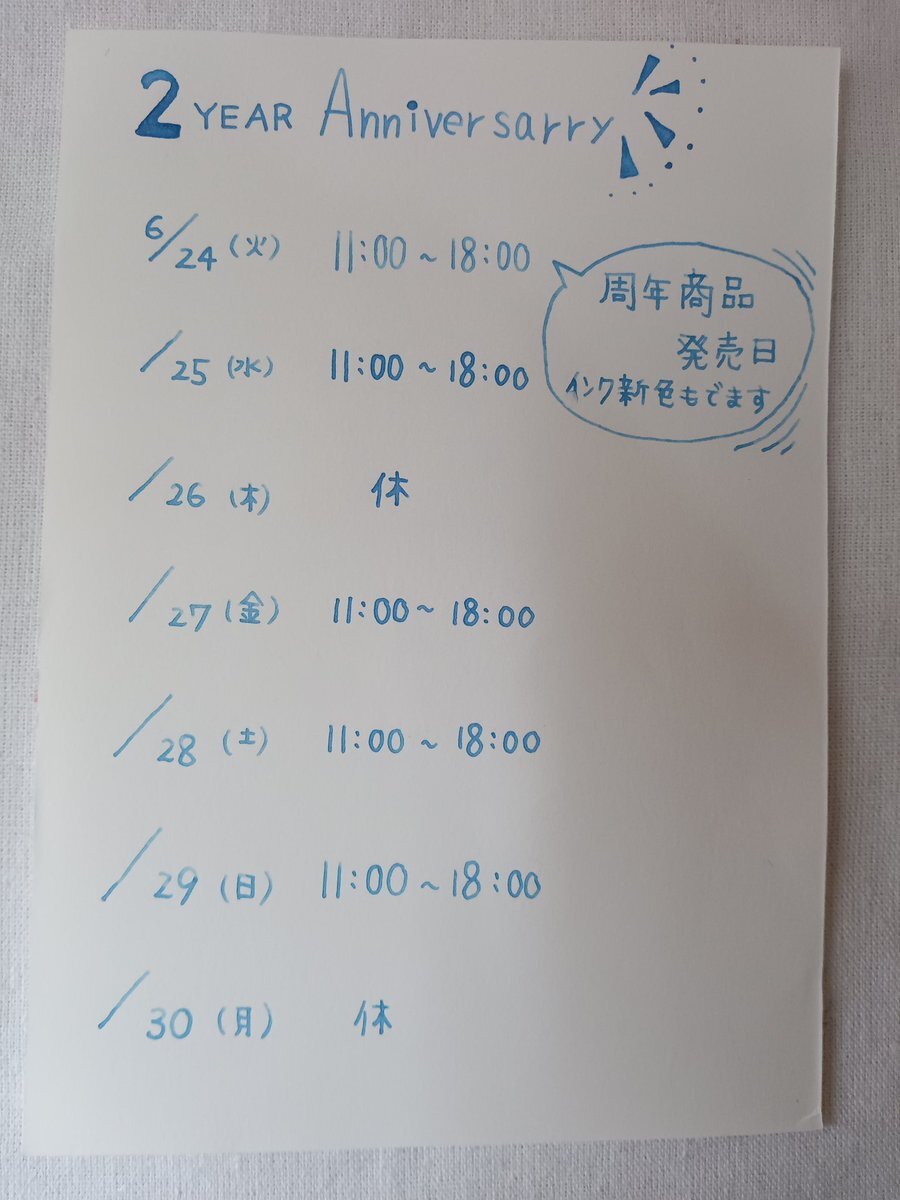 2 YEAR Anniversarry
6/24(火) 11:00~18:00
周年商品
発売日
インク新色もでます
/25(水) 11:00~18:00
/26(木) 休
/27(金) 11:00~18:00
/28(土) 11:00~18:00
/29(日) 11:00~18:00
/30(月) 休